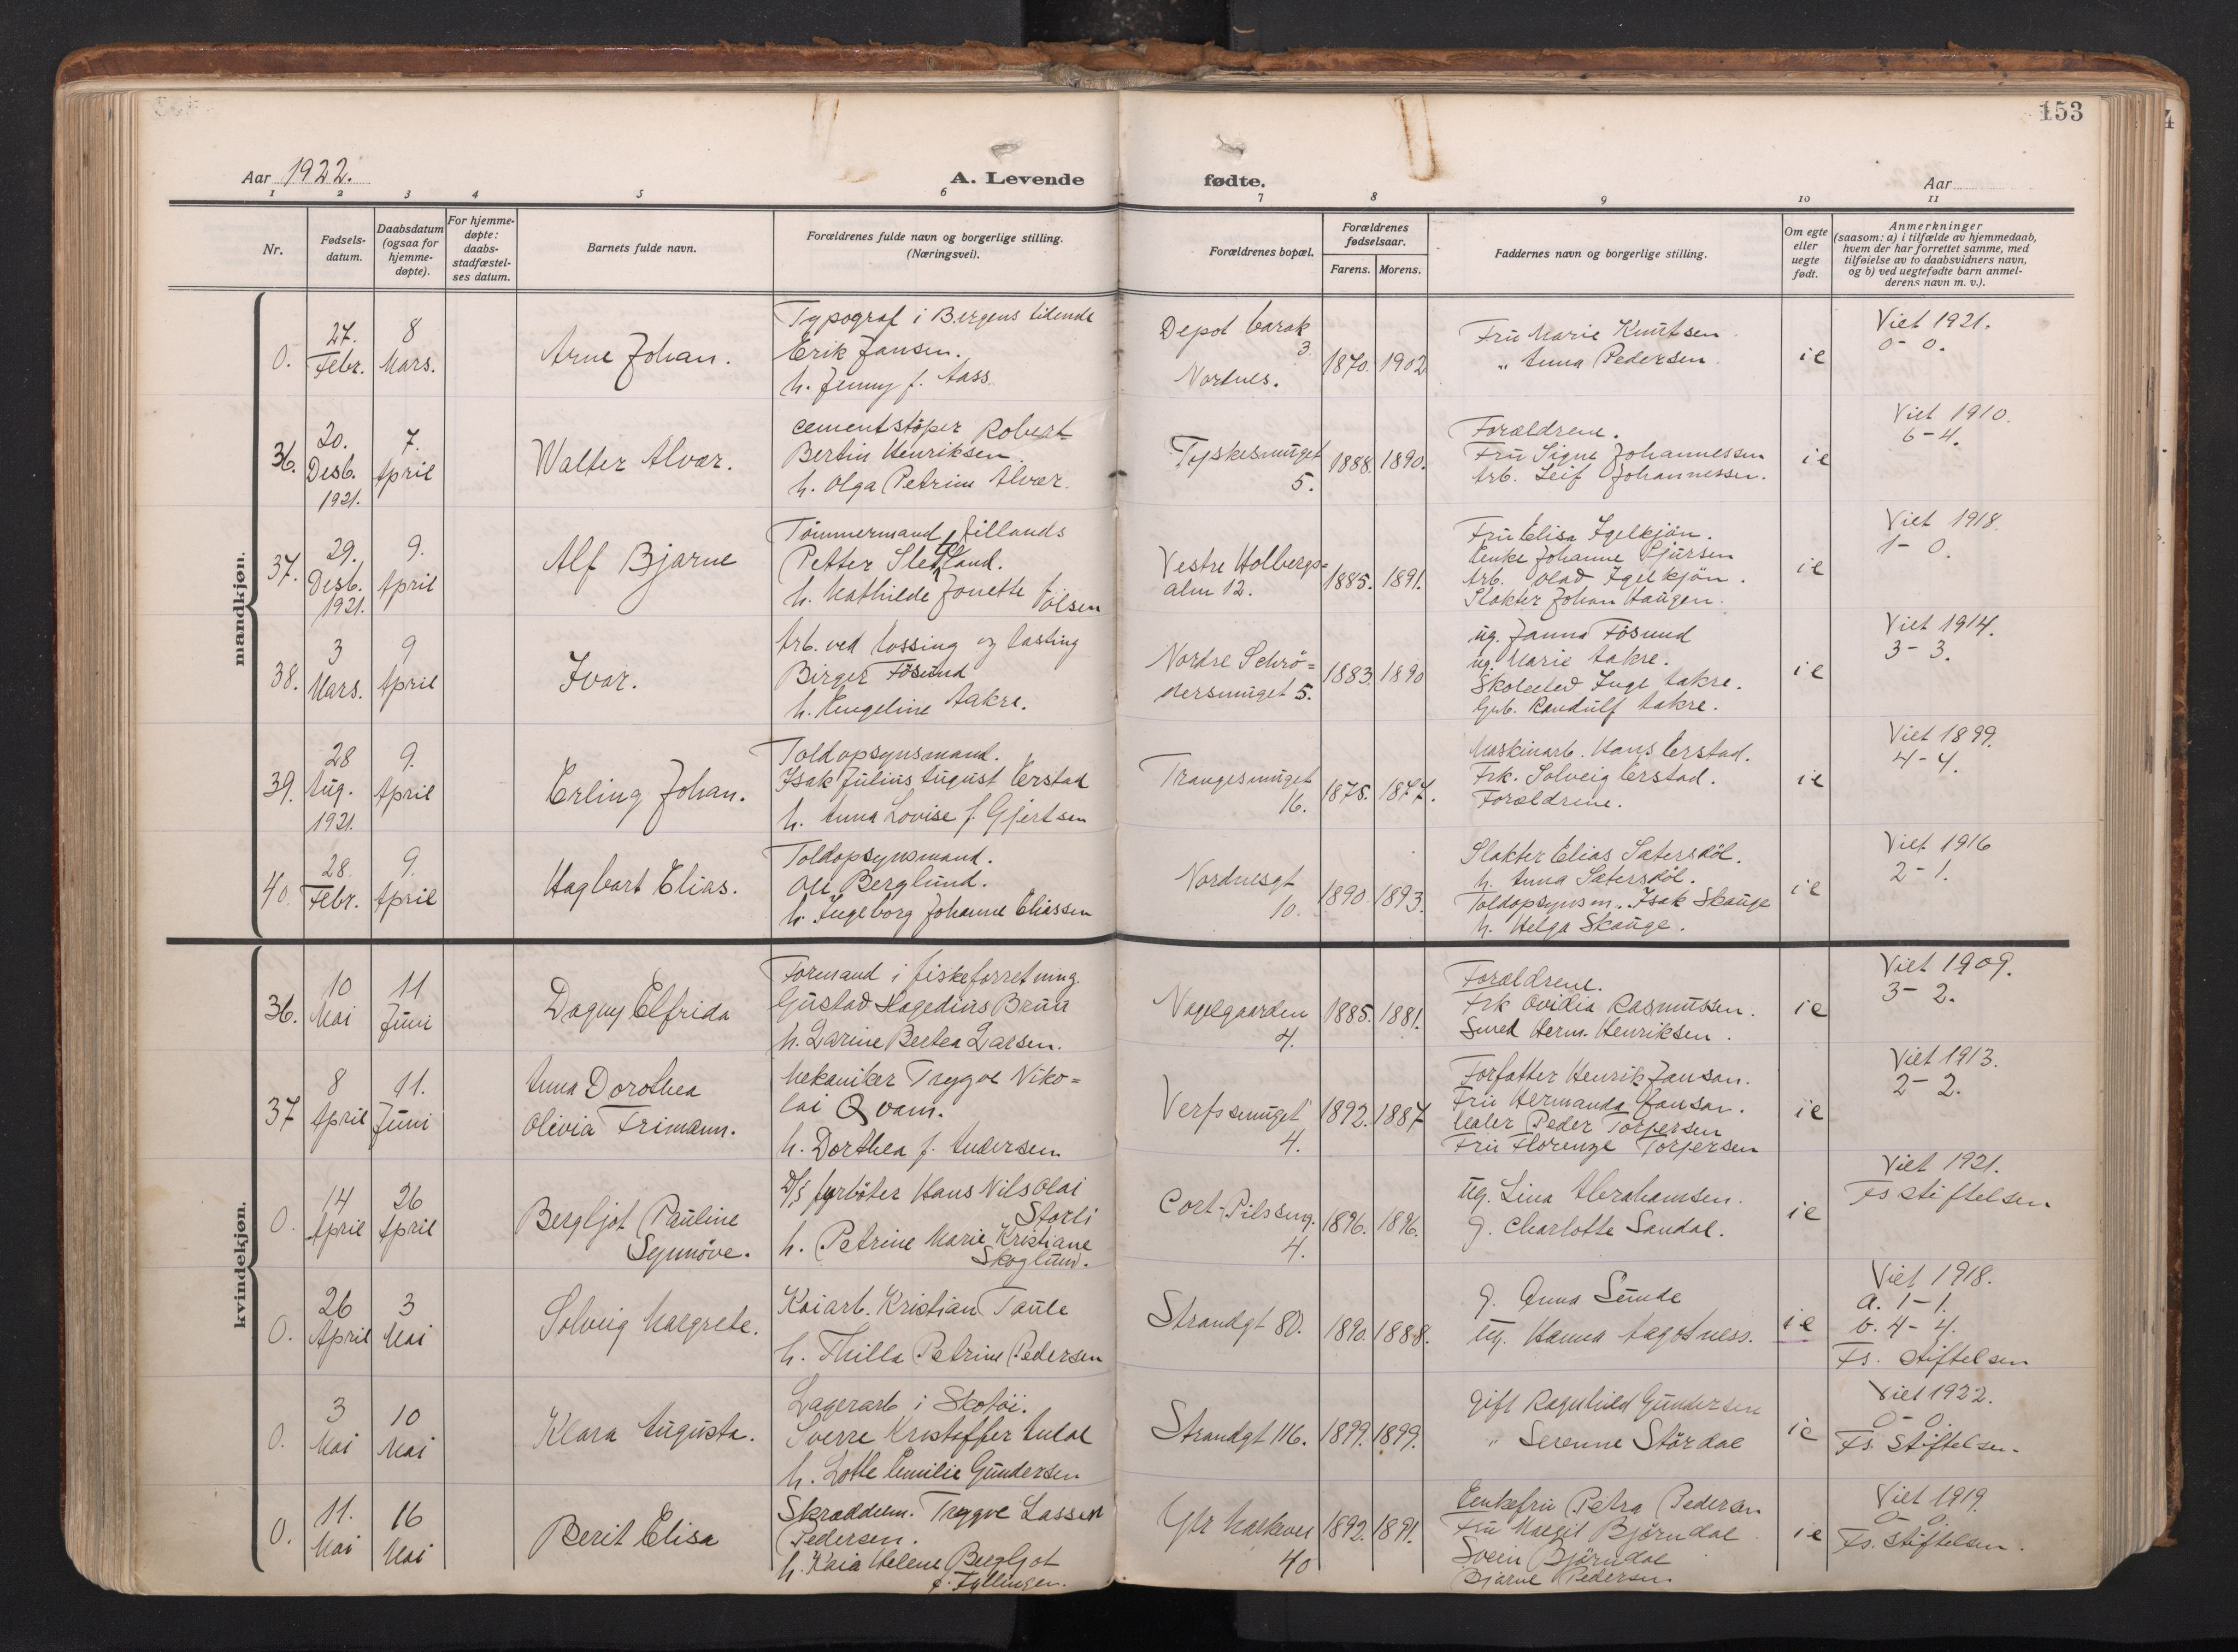 153
Aar 1922.
A. Levende
fødte.
Aar
1 2 3 4 5 6 7 8 9 10 11
Nr.
Fødsels-
datum.
Daabsdatum
(ogsaa for
hjemme-
døpte).
For hjemme-
døpte:
daabs-
stadfæstel-
ses datum.
Barnets fulde navn.
Forældrenes fulde navn og borgerlige stilling.
(Næringsvei).
Forældrenes bopæl.
Forældrenes
fødselsaar.
Farens. Morens.
Faddernes navn og borgerlige stilling.
Om egte
eller
uegte
født.
Anmerkninger
(saasom: a) i tilfælde av hjemmedaab,
hvem der har forrettet samme, med
tilføielse av to daabsvidners navn,
og b) ved uegtefødte barn anmel-
derens navn m. v.).
mandkjøn.
0.
27.
Febr.
8
Mars.
Arne Johan.
Typograf i Bergens tidende
Erik Jansen.
h. Jenny f. Aass.
Depot barak
3
Nordnes.
1870. 1902
Fru Marie Knutsen
" Anna Pedersen
ie
Viet 1921.
0-0.
36.
20.
Desb.
1921.
7.
April
Walter Alvær.
Cementstøper Robert
Bertin Henriksen.
h. Olga Petrine Alvær.
Tyskesmuget
5.
1888. 1890.
Forældrene.
Fru Signe Johannessen
Arb. Leif Johannessen.
ie
Viet 1910.
6-4.
37.
29.
Desb.
1921.
9.
April
Alf Bjarne
Tømmermand Jillands
Petter Sletland.
h. Mathilde Jonette Tolsen
Vestre Holbergs=
alm 12.
1885. 1891.
Fru Elisa Igelkjøn.
Enke Johanne Sjursen
Arb. Olav Igelkjøn.
Slakter Johan Haugen.
ie
Viet 1918.
1-0.
38.
3
Mars.
9
April
Ivar.
Arb. ved lossing og lasting
Birger Føsund
h. Engeline Aakre.
Nordre Schrø=
dersmuget 5.
1883. 1890
ug. Janna Føsund
ug. Marie Aakre.
Skoleelev Inge Aakre.
Gub. Randulf Aakre.
ie
Viet 1914.
3-3.
39.
28
Aug.
1921.
9.
April
Erling Johan.
Toldopsynsmand.
Isak Julius August Erstad
h. Anna Lovise f. Gjertsen
Trangesmuget
16.
1875. 1877.
Maskinarb. Hans Erstad.
Frk. Solveig Erstad.
Forældrene.
ie
Viet 1899.
4-4.
40.
28.
Febr.
9.
April
Hagbart Elias.
Toldopsynsmand.
Ole Berglund.
h. Ingeborg Johanne Eliassen
Nordnesgt
10.
1890. 1893.
Slakter Elias Sætersdøl.
h. Anna Sætersdøl.
Toldopsynsm. Isak Skauge
h. Helga Skauge.
ie
Viet 1916
2-1.
kvindekjøn.
36.
10
Mai
11
Juni
Dagny Elfrida
Formand i fiskeforretning.
Gustav Hagedius Bruu
h. Larine Bertea Larsen.
Nagelgaarden
4.
1885. 1881.
Forældrene.
Frk Ovidia Rasmussen.
Smed Herm. Henriksen.
ie
Viet 1909.
3-2.
37
8
April
11.
Juni
Anna Dorothea
Olivia Frimann.
Mekaniker Trygve Niko=
lai Qvam.
h. Dorthea f. Andersen
Verfssmuget
4.
1892. 1887
Forfatter Henrik Janson.
Fru Hermanda Janson.
Maler Peder Torjersen
Fru Florenze Torjersen
ie
Viet 1913.
2-2.
0.
14
April
26
April
Bergljot Pauline
Synnøve.
D/s fyrbøter Hans Nils Olai
Storli
h. Petrine Marie Kristiane
Skoglund.
Cort-Pilssmg.
4.
1896. 1896.
Ug. Lina Abrahamsen.
g. Charlotte Sandal.
ie
Viet 1921.
Fs stiftelsen
0.
26
April
3
Mai
Solveig Margrete.
Kaiarb. Kristian Taule
h. Thilla Petrine Pedersen
Strandgt 80.
1890. 1888.
g. Anna Sunde
ug. Hanna Aagotness.
ie
Viet 1918.
a. 1-1.
b. 4-4.
Fs. stiftelsen
0.
3
Mai
10
Mai
Klara Augusta.
Lagerarb i Skotøi.
Sverre Kristoffer Auldal
h. Lotte Emilie Gundersen
Strandgt 116.
1899. 1899.
gift Ragnhild Gundersen
" Serenne Størdal
ie
Viet 1922.
0-0.
Fs. Stiftelsen.
0.
11.
Mai
16
Mai
Berit Elisa
Skræddem. Trygve Lassen
Pedersen.
h. Kaia Helene Bergljot
f. Fyllingen.
Ytr Markevei
40
1892. 1891.
Enkefru Petra Pedersen
Fru Margit Bjørndal
Svein Bjørndal
Bjarne Pedersen
ie
Viet 1919.
0-0.
Fs. Stiftelsen.